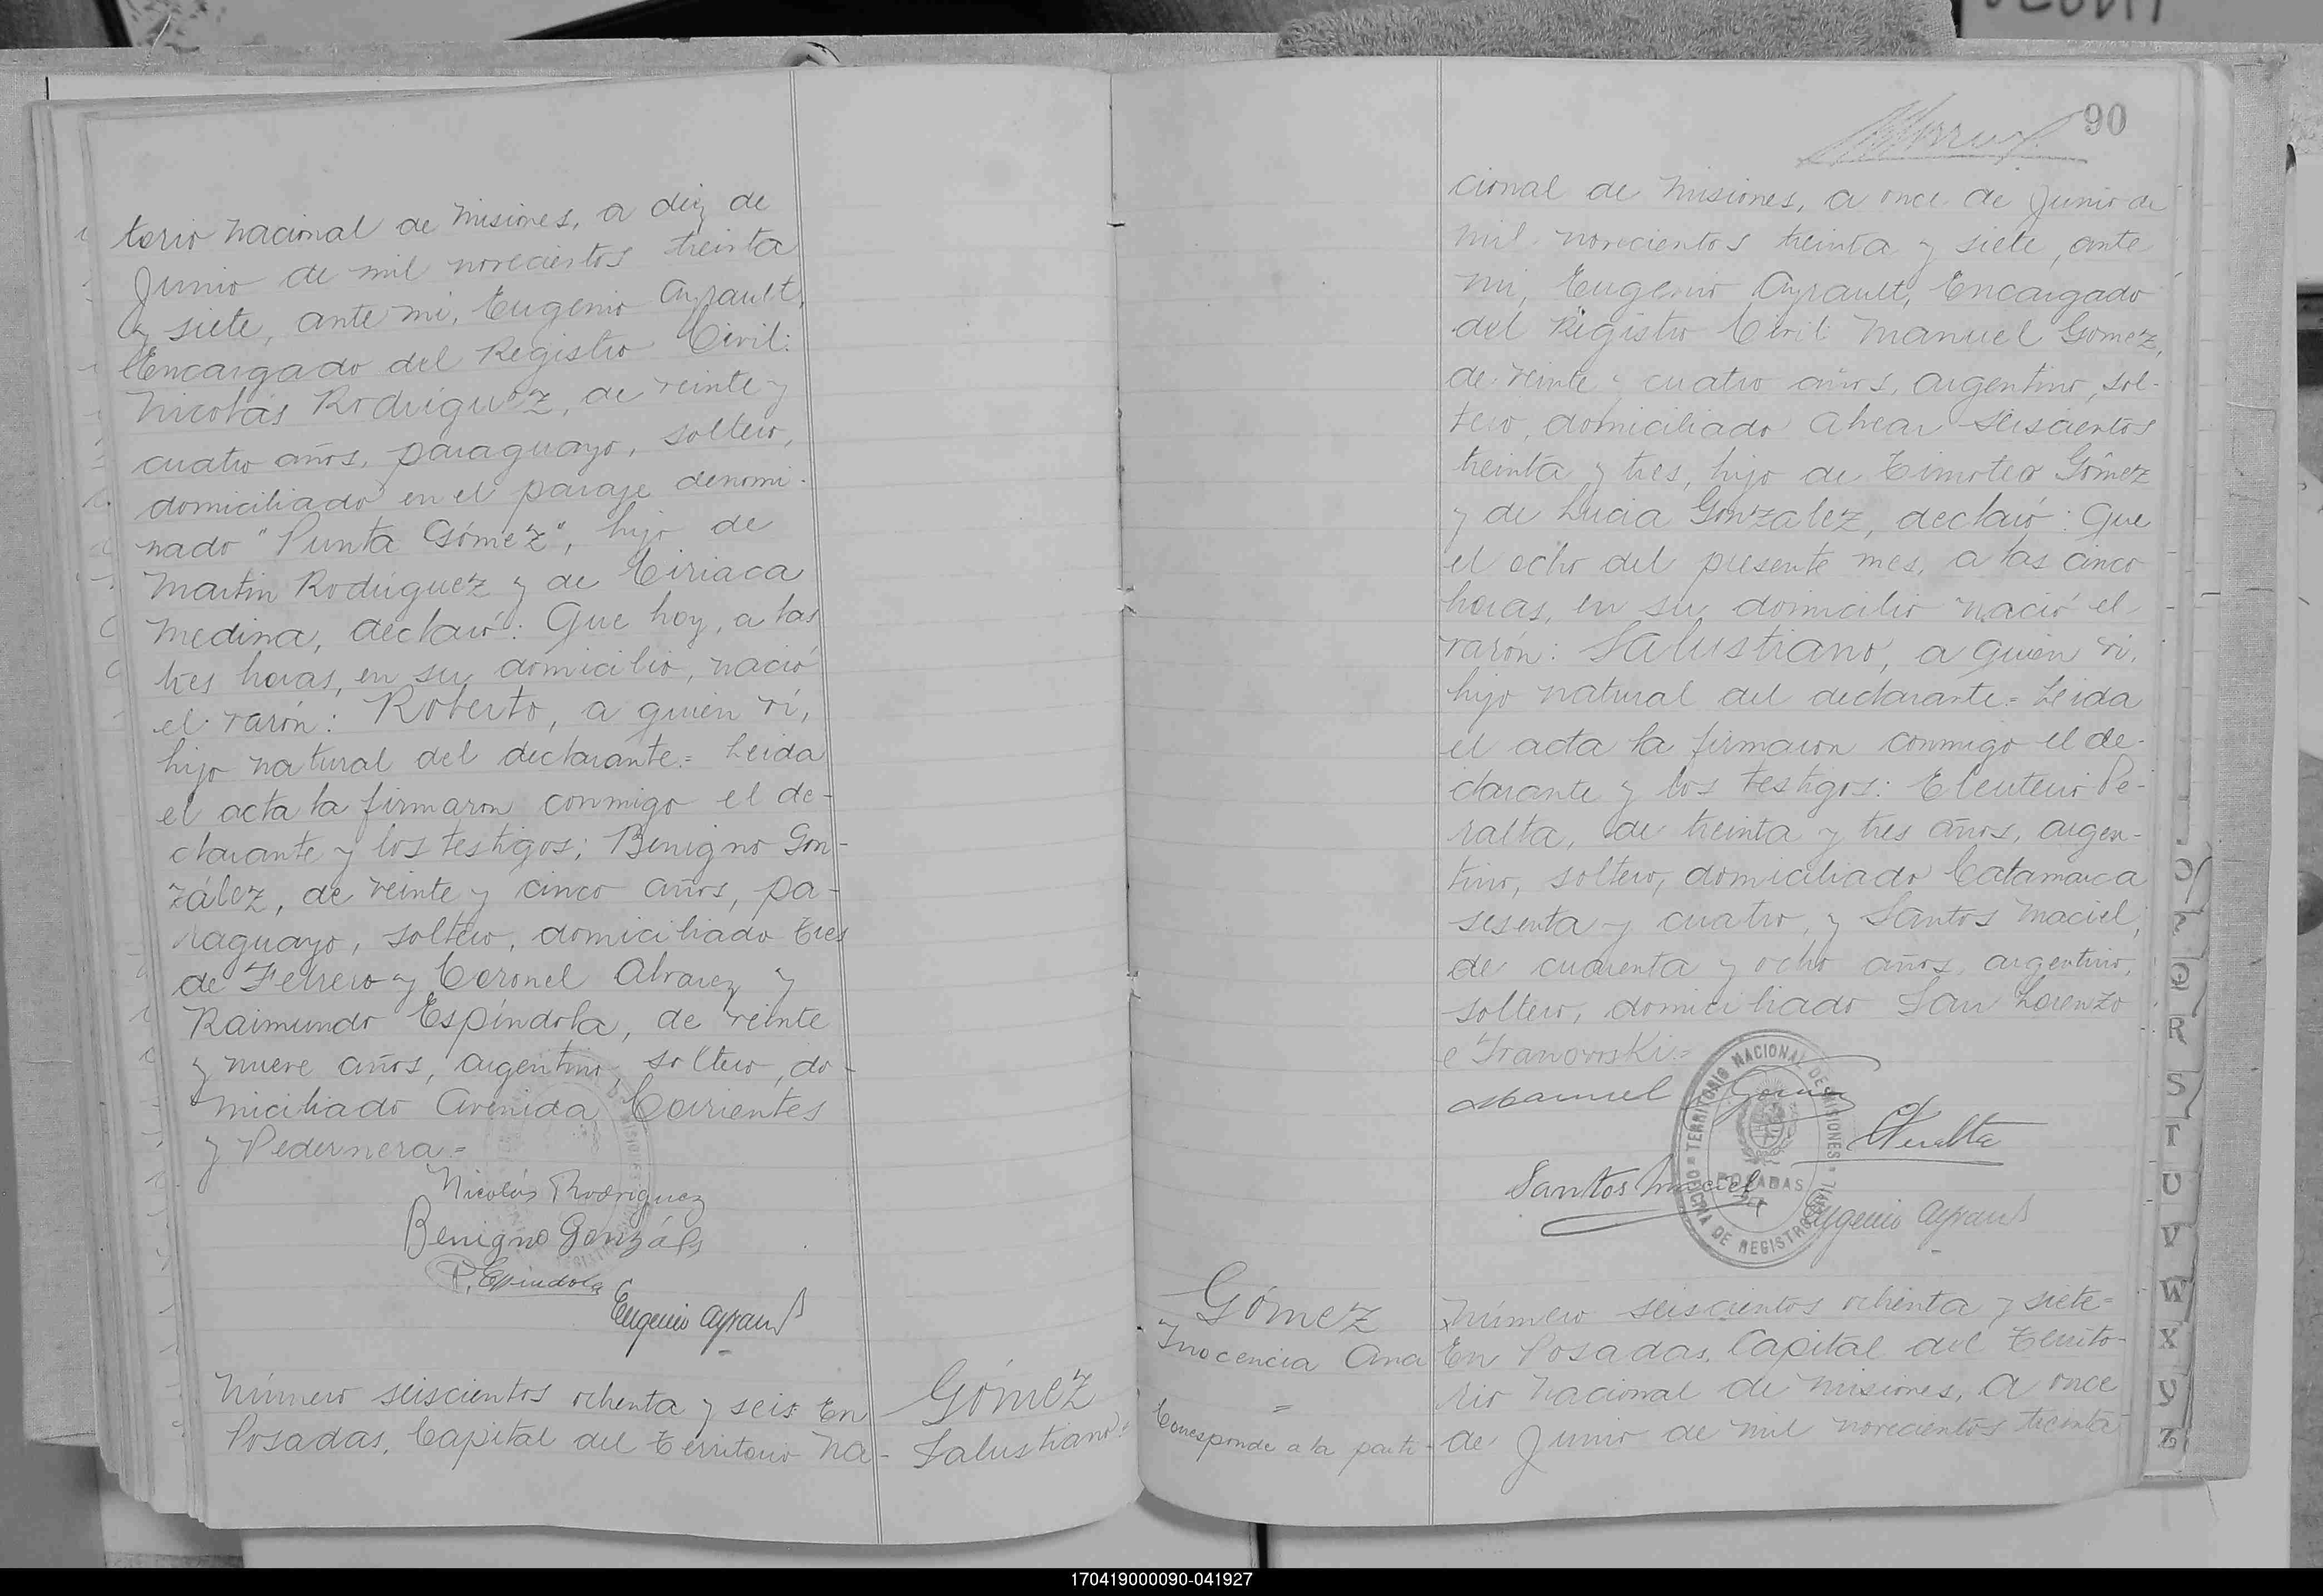 torio nacional de Misiones, a diez de
Junio de mil novecientos treinta
y siete, ante mi, Eugenio Ayrault,
Encargado del Registro Civil:
Nicolás Rodríguez, de veinte y
cuatro años, paraguayo, soltero,
domiciliado en el paraje denomi-
nado "Punta Gómez", hijo de
Martin Rodriguez y de Ciriaca
Medina, declaró: Que hoy, a las
tres horas, en su domicilio, nació
el varón: Roberto, a quien ví,
hijo natural del declarante.= Leida
el acta la firmaron conmigo el de-
clarante y los testigos: Benigno Gon-
zález, de veinte y cinco años, pa-
raguayo, soltero, domiciliado Tres
de Febrero y Coronel Alvarez y
Raimundo Espíndola, de veinte
y nueve años, argentino, soltero, do-
miciliado Avenida Corrientes
y Pedernera.=
Nicolás Rodriguez
Benigno Gonzáls
R. Espindola
Eugenio Ayrault
Número seiscientos ochenta y seis En
Posadas, Capital del Territorio Na-
Gómez
Salustiano
90
cional de Misiones, a once de Junio de
mil novecientos treinta y siete, ante
mi, Eugenio Ayrault, Encargado
del Registro Civil: Manuel Gomez,
de veinte y cuatro años, argentino, sol-
tero, domiciliado Alvear seiscientos
treinta y tres, hijo de Timoteo Gómez
y de Lucia Gonzalez, declaró: Que
el ocho del presente mes, a las cinco
horas, en su domicilio nació el
varón: Salustiano, a quien ví,
hijo natural del declarante.= Leida
el acta la firmaron conmigo el de-
clarante y los testigos: Eleuterio Pe-
ralta, de treinta y tres años, argen-
tino, soltero, domiciliado Catamarca
sesenta y cuatro, y Santos Maciel,
de cuarenta y ocho años, argentino,
soltero, domiciliado San Lorenzo
e Ivanowski.=
Manuel Gomez
EPeralta
Santos Maciel
Eugenio Ayrault
TERRITORIO NACIONAL DE MISIONES
POSADAS
OFICINA DE REGISTRO CIVIL
Gómez
Inocencia Ana
=
Corresponde a la parti-
Número seiscientos ochenta y siete=
En Posadas, Capital del Territo-
rio Nacional de Misiones, a once
de Junio de mil novecientos treinta
O
P
Q
R
S
T
U
V
W
X
Y
Z
170419000090-041927